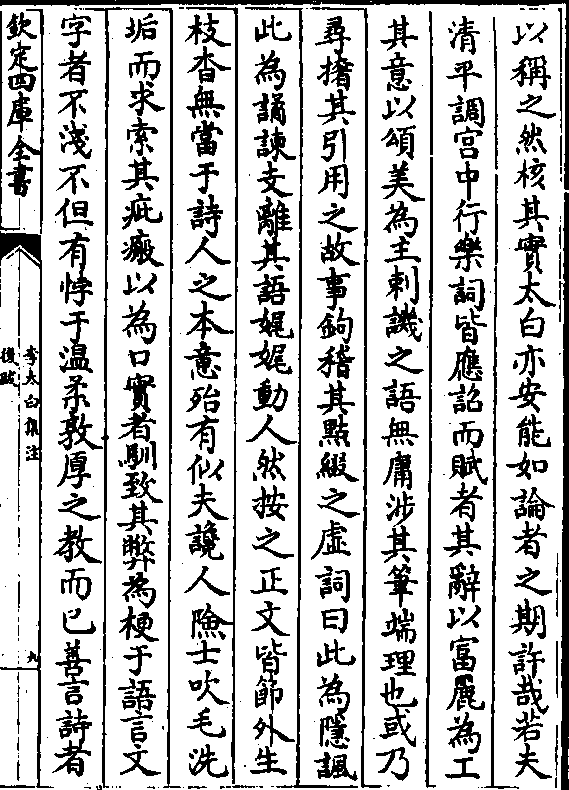 以稱之然核其實太白亦安能如論者之期許哉若夫
清平調宫中行樂詞皆應詔而賦者其辭以富麗為工
其意以頌美為主刺譏之語無庸涉其筆端理也或乃
尋撦其引用之故事鉤稽其點綴之虚詞曰此為隱諷
此為譎諫支離其語娓娓動人然按之正文皆節外生
枝杳無當于詩人之本意殆有似夫讒人險士吹毛洗
垢而求索其疵瘢以為口實者馴致其弊為梗于語言文
字者不淺不但有悖于温柔敦厚之教而已善言詩者
欽定四庫全書
李太白集注
後跋
九